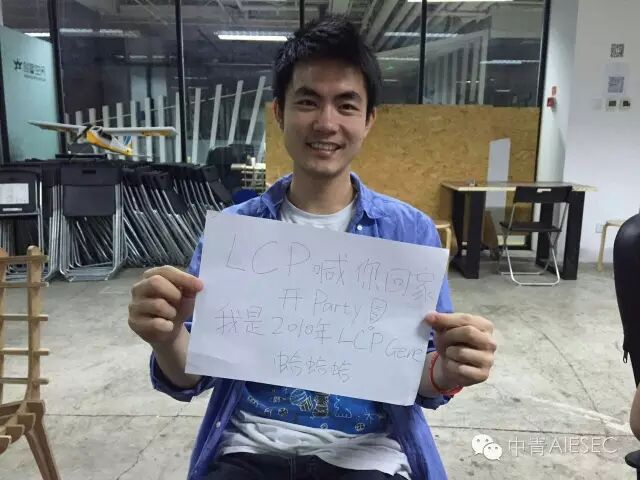 LCP喊你回家
开Party
我是2010年LCP Gene
蛤蛤蛤
中青AIESEC